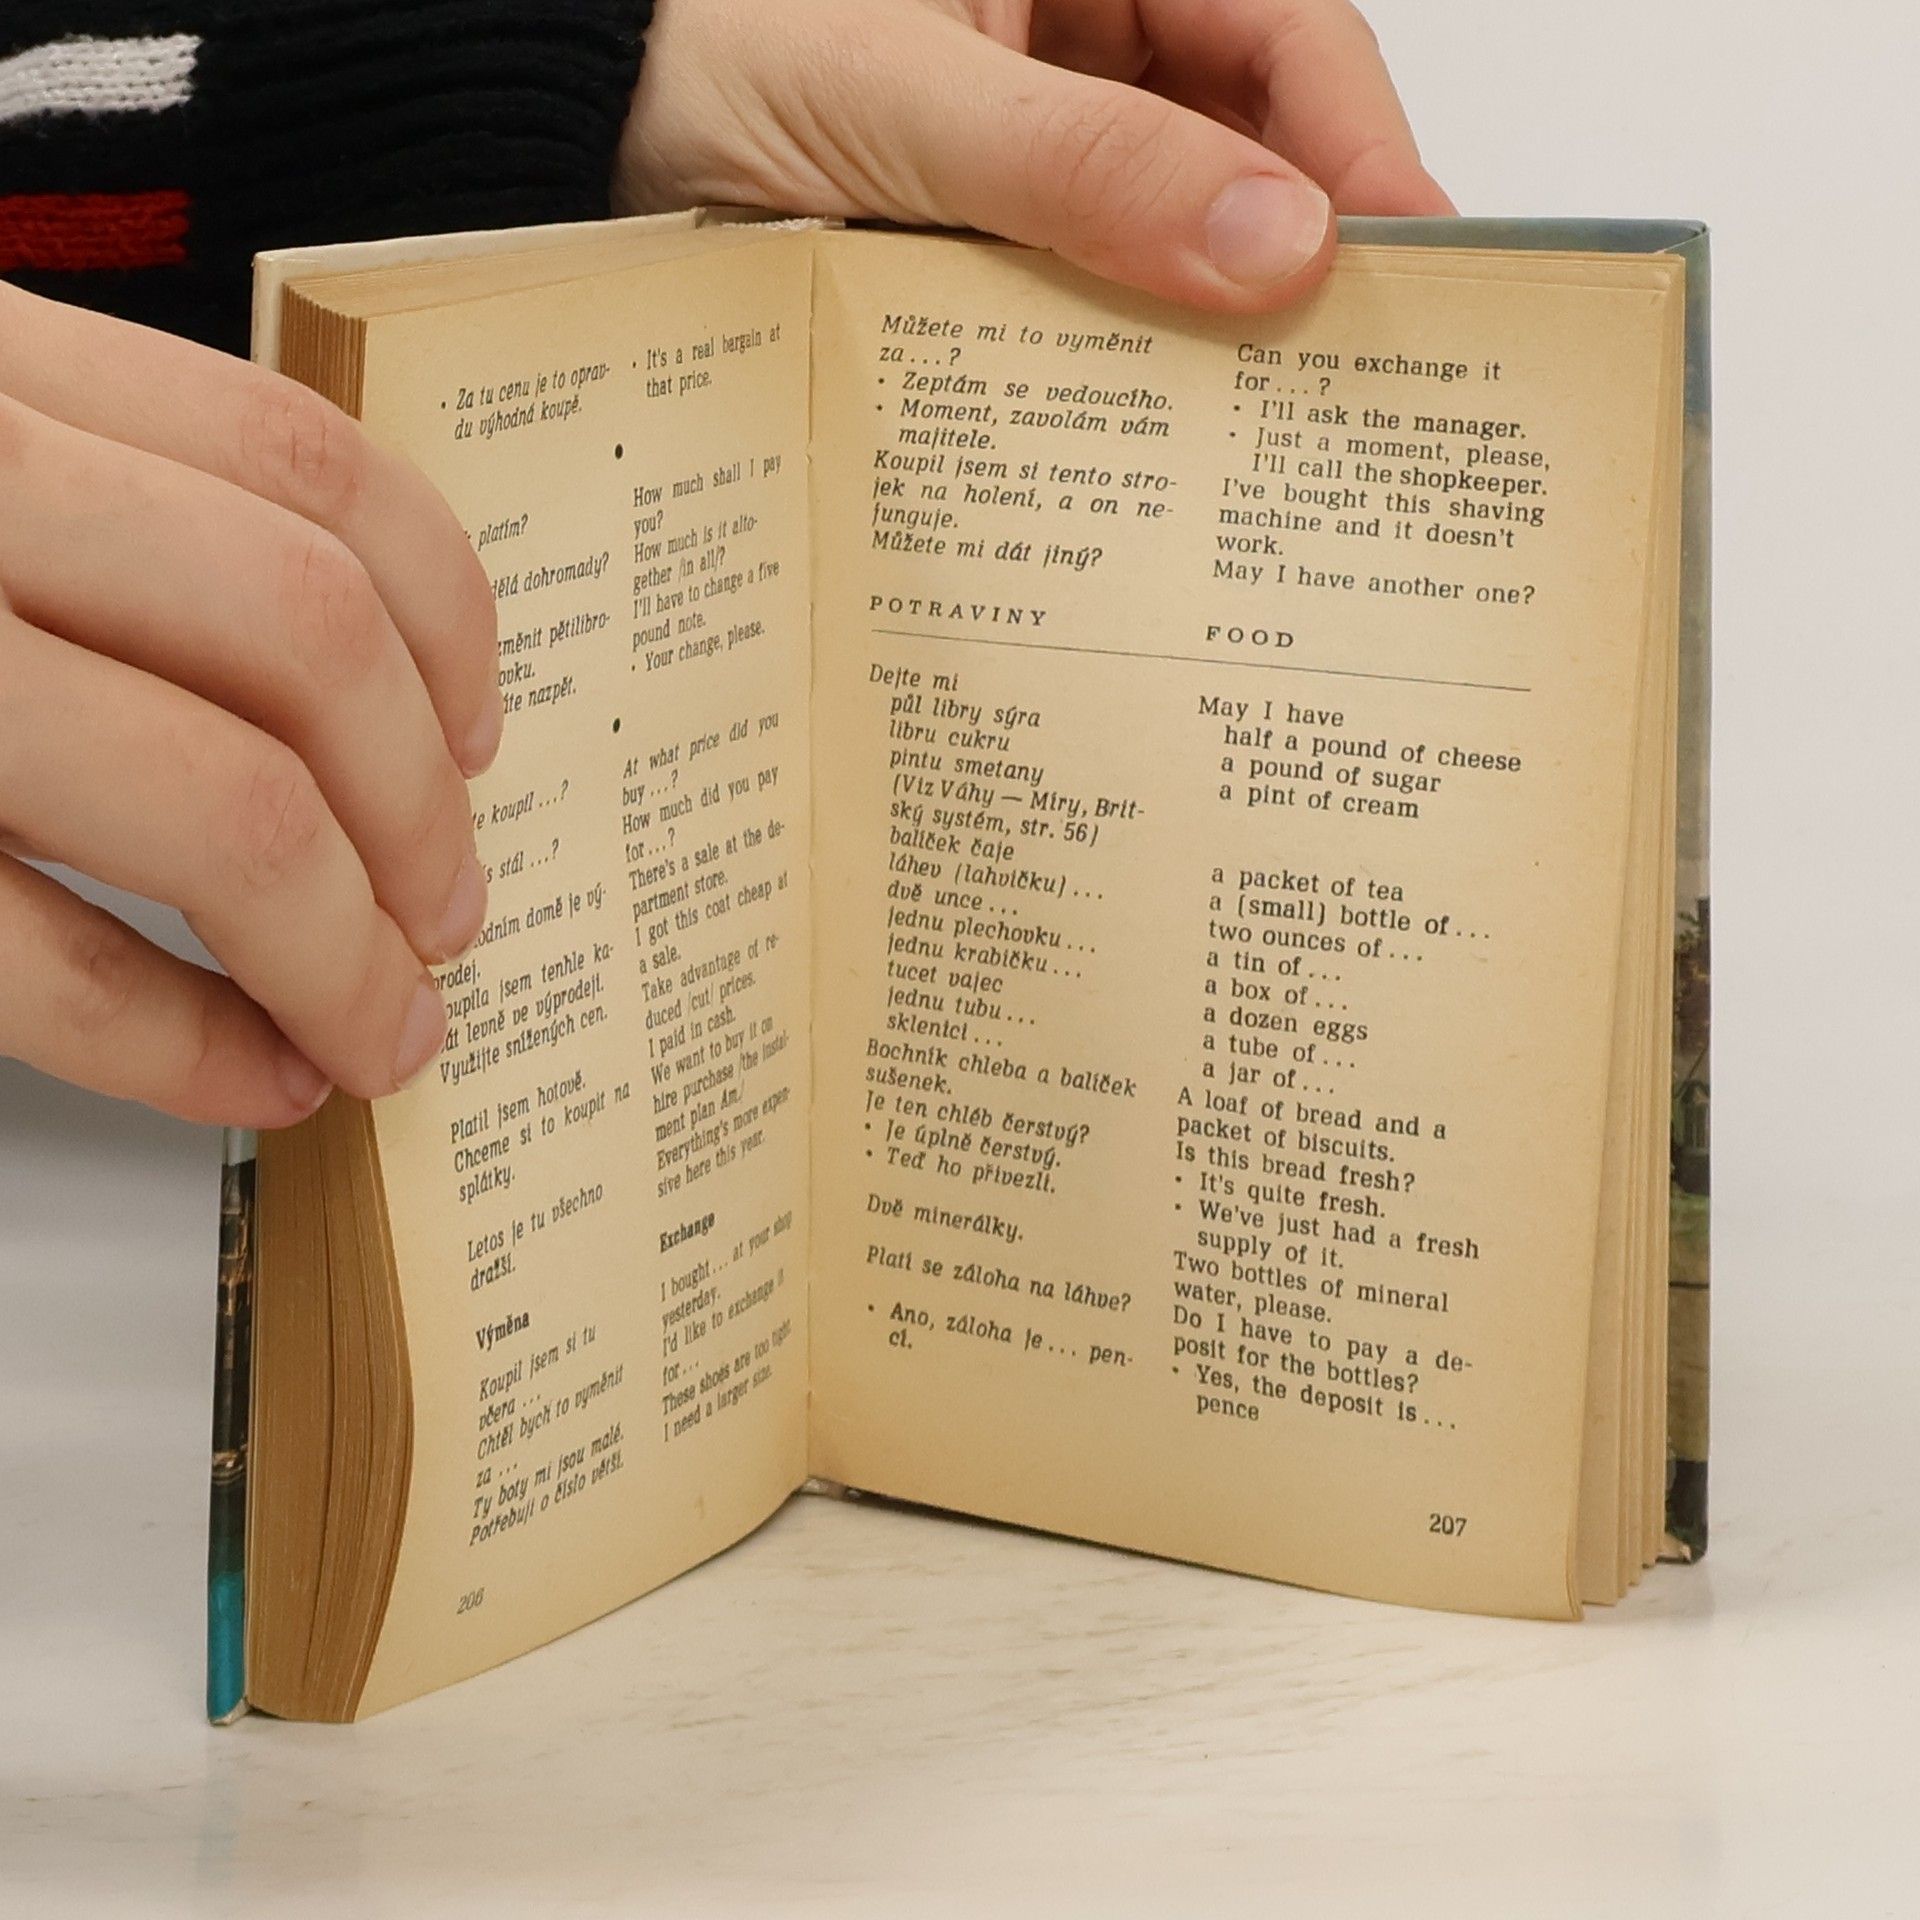 • Za tu cenu je to oprav-
du výhodná koupě.
platím?
dělá dohromady?
změnit pětilibro-
ovku.
nazpět.
koupil ...?
stál ...?
domě je vý-
prodej.
jsem tenhle ka-
levně ve výprodeji.
Využijte snížených cen.
Platil jsem hotově.
Chceme si to koupit na
splátky.
Letos je tu všechno
dražší.
Výměna
Koupil jsem si tu
včera ...
Chtěl bych to vyměnit
za ...
Ty boty mi jsou malé.
Potřebuji o číslo větší.
206
• It's a real bargain at
that price.
•
How much shall I pay
you?
How much is it alto-
gether /in all/?
I'll have to change a five
pound note.
• Your change, please.
•
At what price did you
buy ...?
How much did you pay
for ...?
There's a sale at the de-
partment store.
I got this coat cheap at
a sale.
Take advantage of re-
duced /cut/ prices.
I paid in cash.
We want to buy it on
hire purchase /the instal-
ment plan Am./
Everything's more expen-
sive here this year.
Exchange
I bought ... at your shop
yesterday.
I'd like to exchange it
for ...
These shoes are too tight
I need a larger size.
Můžete mi to vyměnit
za ... ?
• Zeptám se vedoucího.
• Moment, zavolám vám
majitele.
Koupil jsem si tento stro-
jek na holení, a on ne-
funguje.
Můžete mi dát jiný?
POTRAVINY
Dejte mi
půl libry sýra
libru cukru
pintu smetany
(Viz Váhy — Míry, Brit-
ský systém, str. 56)
balíček čaje
láhev (lahvičku) ...
dvě unce ...
jednu plechovku ...
jednu krabičku ...
tucet vajec
jednu tubu ...
sklenici ...
Bochník chleba a balíček
sušenek.
Je ten chléb čerstvý?
• Je úplně čerstvý.
• Teď ho přivezli.
Dvě minerálky.
Platí se záloha na láhve?
• Ano, záloha je ... pen-
cí.
Can you exchange it
for ... ?
• I'll ask the manager.
• Just a moment, please,
I'll call the shopkeeper.
I've bought this shaving
machine and it doesn't
work.
May I have another one?
FOOD
May I have
half a pound of cheese
a pound of sugar
a pint of cream
a packet of tea
a (small) bottle of ...
two ounces of ...
a tin of ...
a box of ...
a dozen eggs
a tube of ...
a jar of ...
A loaf of bread and a
packet of biscuits.
Is this bread fresh?
• It's quite fresh.
• We've just had a fresh
supply of it.
Two bottles of mineral
water, please.
Do I have to pay a de-
posit for the bottles?
• Yes, the deposit is ...
pence
207